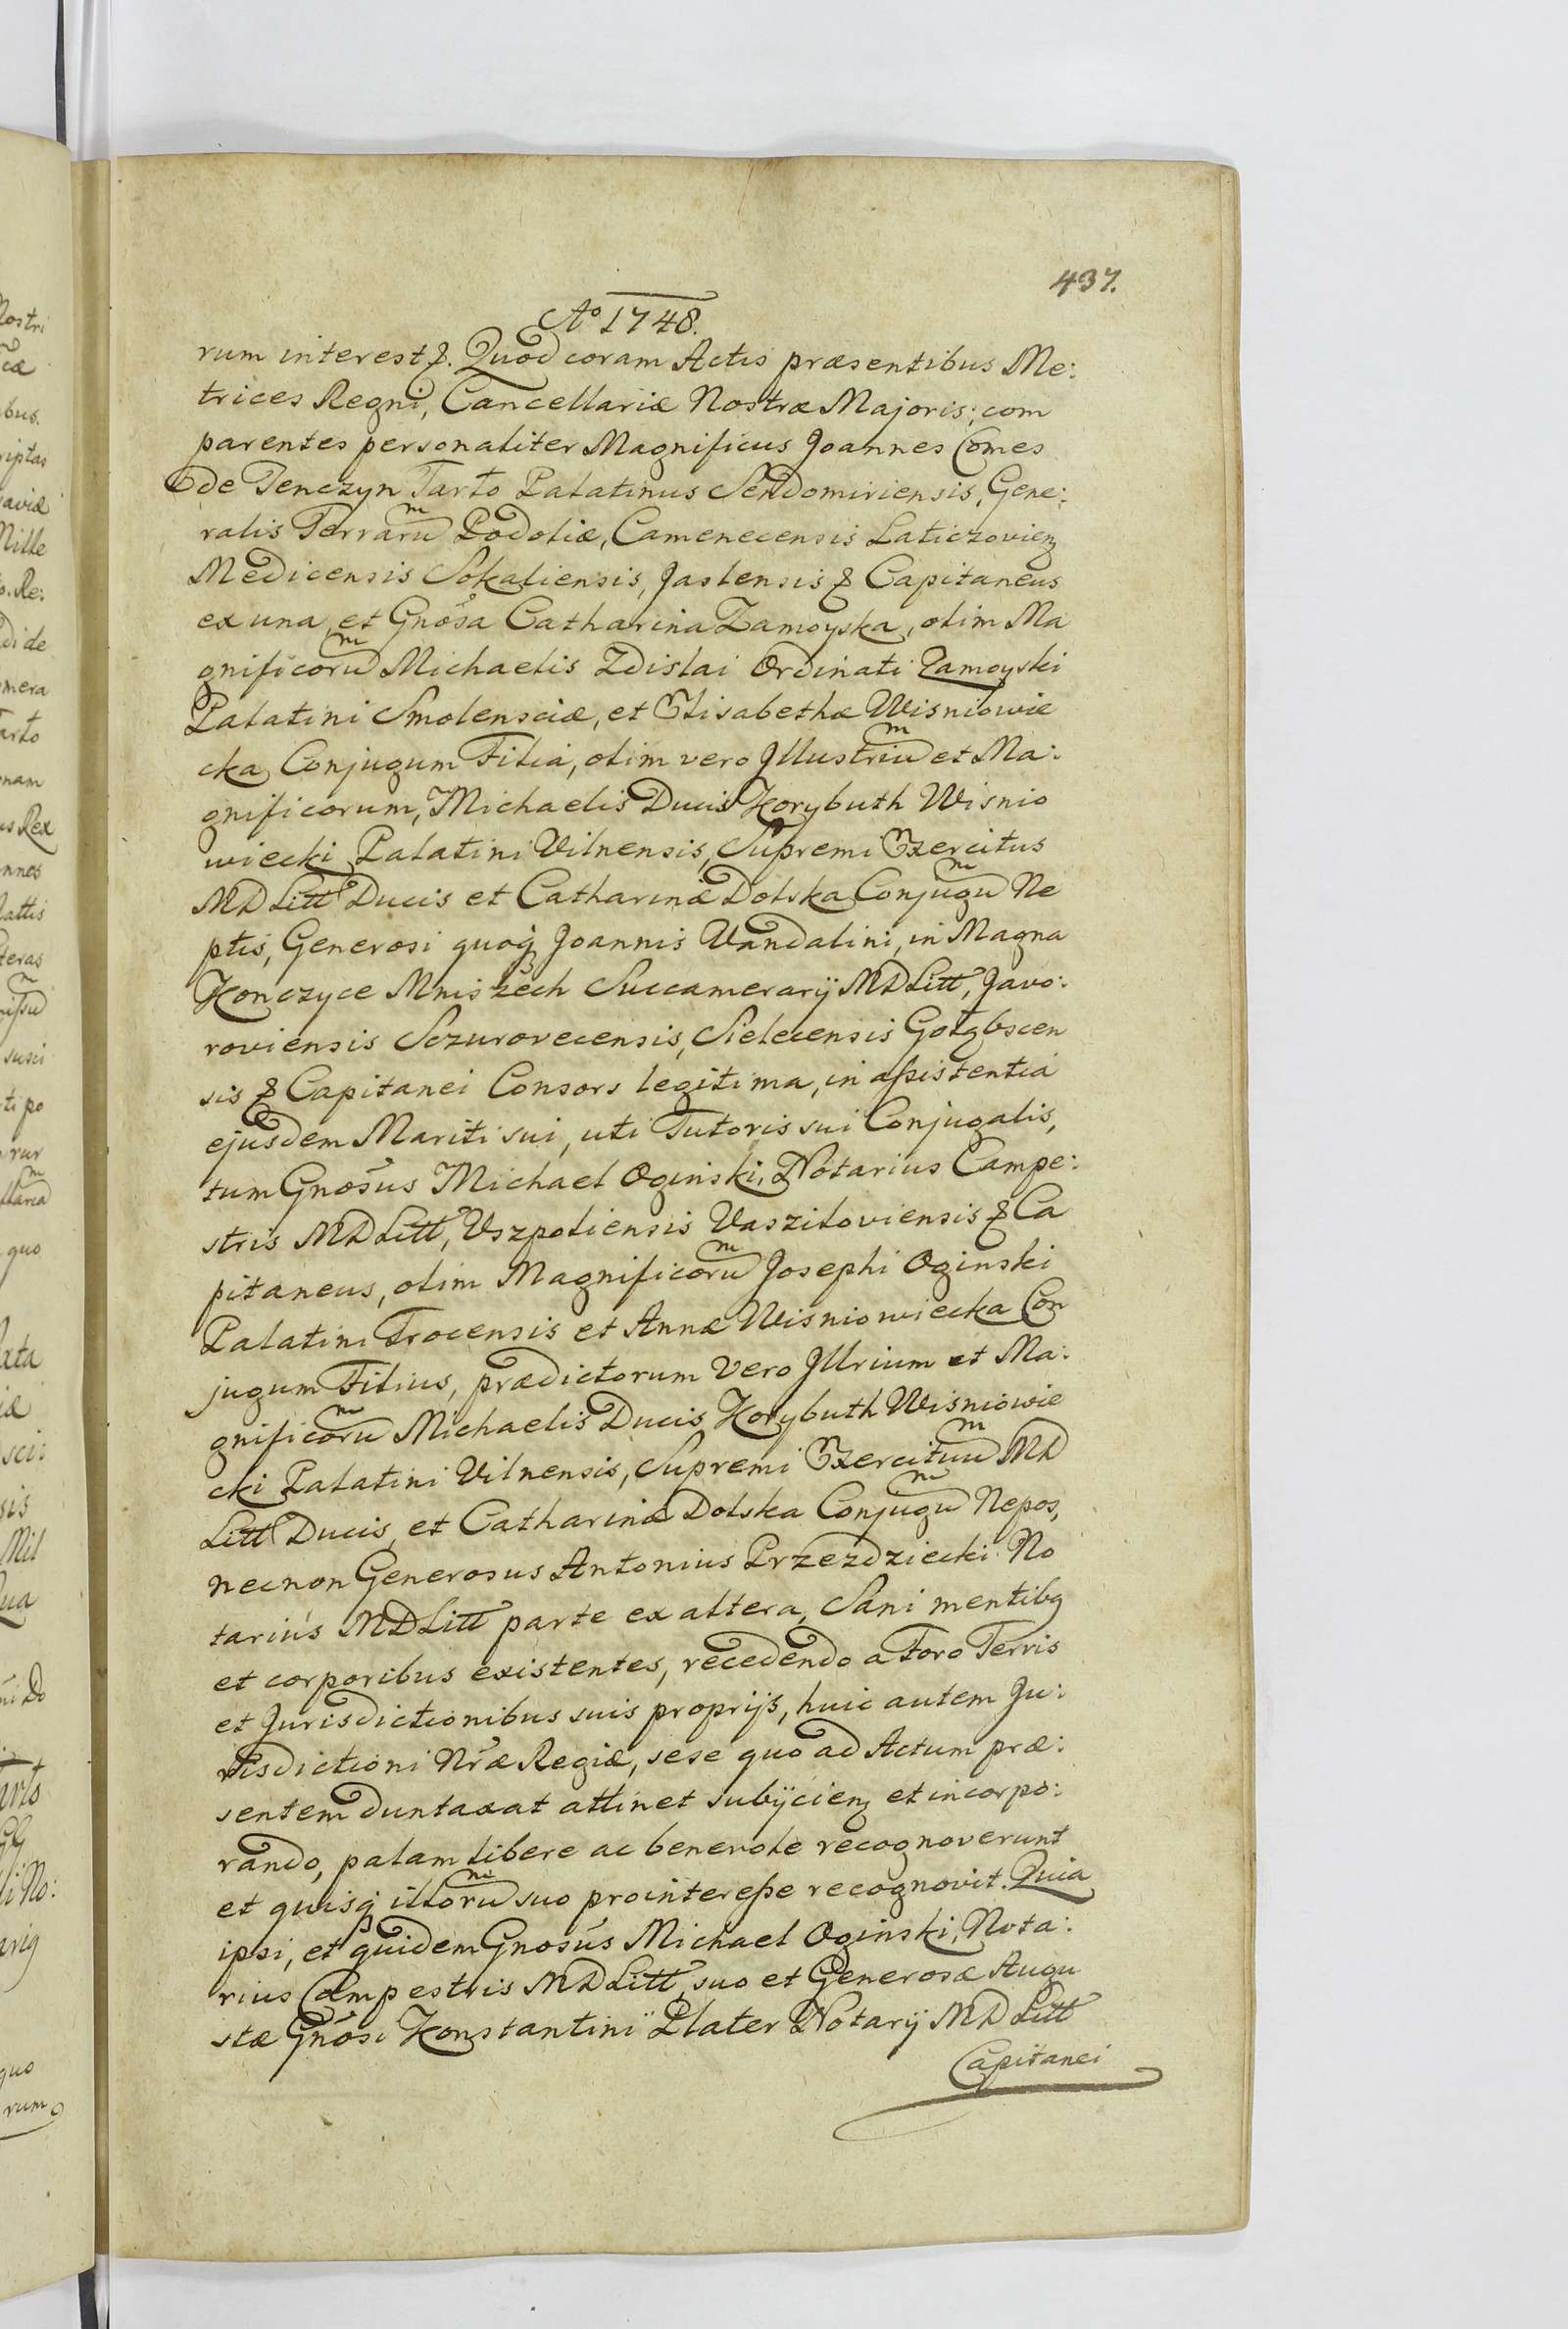 437.
Aº 1748.
rum interest &. Quod coram Actis præsentibus Me:
trices Regni, Cancellariæ Nostræ Majoris, com
parentes personaliter Magnificus Joannes Comes
de Tenczyn Tarło Palatinus Sendomiriensis, Gene:
ralis Terraru͠m Podoliæ, Camenecensis Laticzovien͠
Medicensis Sokaliensis, Jaslensis & Capitaneus
ex una, et Gnõsa Catharina Zamoyska, olim Ma
gnificoru͠m Michaelis Zdislai Ordinati Zamoyski
Palatini Smolensciæ, et Elisabethæ Wisniowie
cka Conjugum Filia, olim vero Jllustriu͠m et Ma:
gnificorum, Michaelis Ducis Korybuth Wisnio
wiecki Palatini Vilnensis, Supremi Exercitus
MDLitt Ducis et Catharinæ Dolska Conjugu͠m Ne
ptis, Generosi quoq̃ Joannis Vandalini, in Magna
Konczyce Mniszech Succamerarij MDLitt, Javo:
roviensis Sczurovecensis, Sielecensis Gołąbscen
sis & Capitanei Consors legitima, in assistentia
ejusdem Mariti sui, uti Tutoris sui Conjugalis,
tum Gnõsus Michael Oginski, Notarius Campe:
stris MDLitt, Uszpoliensis Vasziloviensis & Ca
pitaneus, olim Magnificoru͠m Josephi Oginski
Palatini Trocensis et Annæ Wisniowiecka Con
jugum Filius, prædictorum vero Jllrium et Ma:
gnificoru͠m Michaelis Ducis Korybuth Wisniowie
cki Palatini Vilnensis, Supremi Exercituu͠m MD
Litt Ducis, et Catharinæ Dolska Conjugu͠m Nepos,
necnon Generosus Antonius Przezdziecki No
tarius MDLitt parte ex altera, Sani mentibq
et corporibus existentes, recedendo a Foro Terris
et Jurisdictionibus suis proprijs, huic autem Ju:
risdictioni Nr̃æ Regiæ, sese quo ad Actum præ:
sentem duntaxat attinet subijcien͠ et incorpo:
rando, palam libere ac benevole recognoverunt
et quisq̃ illoru͠m suo pro interesse recognovit. Quia
ipsi, et quidem Gnosus Michael Oginski, Nota:
rius Campestris MDLitt, suo et Generosæ Augu
stæ Gnõsi Konstantini Plater Notarij MDLitt
Capitanei